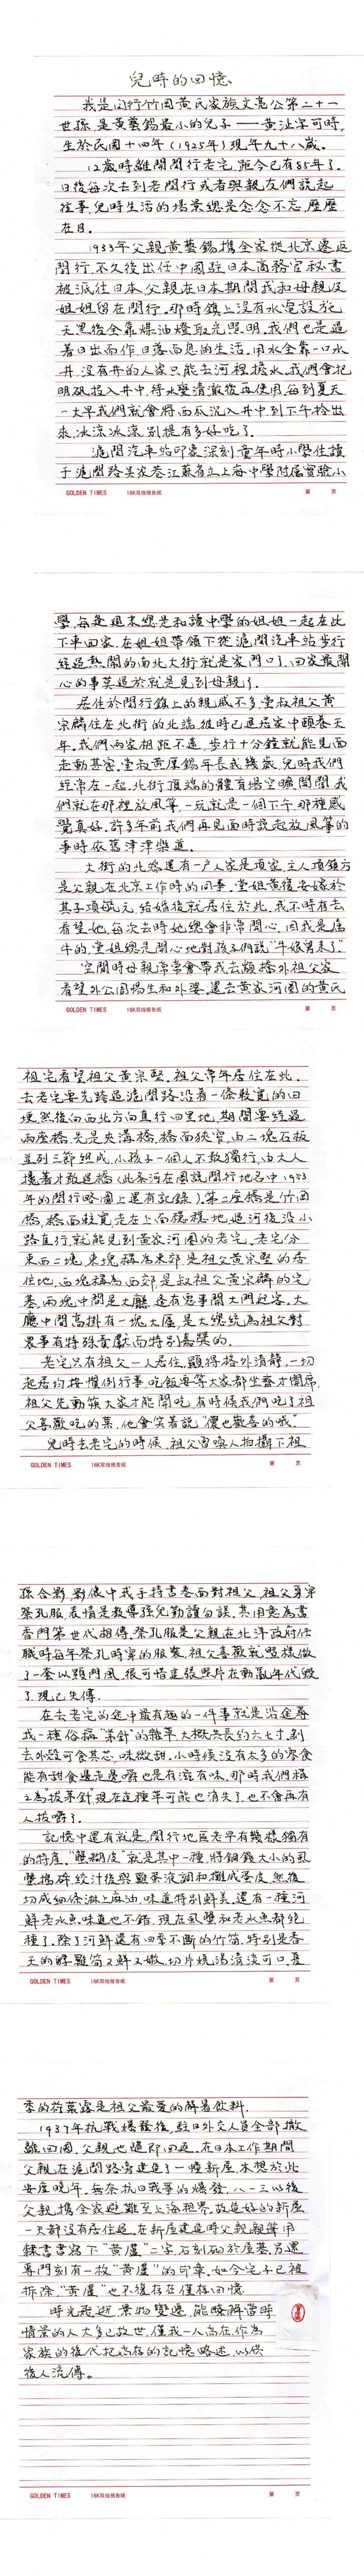 兒時的回憶
我是閔行竹岡黃氏家族文亮公第二十一
世孫,是黃藝錫最小的兒子——黃沚字可時,
生於民國十四年(1925年)現年九十八歲。
12歲時離開閔行老宅,距今已有85年了。
日後每次去到老閔行或者與親友們說起
往事,兒時生活的場景總是念念不忘,歷歷
在目。
1933年父親黃藝錫攜全家從北京遷返
閔行,不久後出任中國駐日本商務官秘書
被派往日本,父親在日本期間我和母親及
姐姐留在閔行。那時鎮上沒有水電設施
天黑後全靠煤油燈取光照明,我們也是過
著日出而作日落而息的生活。用水全靠一口水
井,沒有井的人家只能去河裡擔水,我們會把
明矾投入井中,待水變清澈後再使用,每到夏天
一大早我們就會將西瓜沉入井中到下午拎出
來,冰涼冰涼別提有多好吃了。
滬閔汽車站印象深刻,童年時小學住讀
于滬閔路吳家巷江蘇省立上海中學附屬實驗小
GOLDEN TIMES 16K双线报告纸 第 页
學,每逢週末總是和讀中學的姐姐一起在此
下車回家,在姐姐帶領下從滬閔汽車站步行
經過熱鬧的南北大街就是家門口了,回家最開
心的事莫過於就是見到母親了。
居住於閔行鎮上的親戚不多,堂叔祖父黃
宗麟住在北街的北端,彼時已退居家中頤養天
年。我們兩家相距不遠,步行十分鐘就能見面
走動甚密。堂叔黃屋錫年長我幾歲,兒時我們
經常在一起。北街頂端的體育場空曠開闊,我
們就在那裡放風箏,一玩就是一個下午,那種感
覺真好。許多年前我們再見面時說起放風箏的
事時依舊津津樂道。
大街的北端還有一户人家是項家,主人項鎮方
是父親在北京工作時的同事,堂姐黃復安嫁於
其子項毓元,結婚後就居住於此,我不時有去
看望她,每次去時她總會非常開心,因我是屬
牛的,堂姐總是開心地對孩子們說“牛娘舅來了”。
空閒時母親常常會帶我去顓橋外祖父家
看望外公周揚生和外婆,還去黃家河圈的黃氏
GOLDEN TIMES 16K双线报告纸 第 页
祖宅看望祖父黃宗堅。祖父常年居住在此。
去老宅要先跨過滬閔路沿着一條較寬的田
埂然後向西北方向直行四里地,期間要經過
兩座橋,先是夾溝橋,橋面狹窄,由二塊石板
並列三節組成,小孩子一個人不敢獨行,由大人
攙著才敢過橋(此条河在圖說閔行地名中1953
年的閔行略圖上還有記錄)。第二座橋是竹岡
橋,橋面較寬走在上面穩穩地,過河後沿小
路直行,就能見到黃家河圈的老宅。老宅分
東西二塊,東塊稱為東部是祖父黃宗堅的居
住地,西塊稱為西部是叔祖父黃宗麟的宅
基,兩塊中間是大廳,逢有喪事開大門起客。大
廳中間高掛有一塊大匾,是大總統為祖父對
農事有特殊貢獻而特別嘉獎的。
老宅只有祖父一人居住,顯得格外清靜,一切
起居均按慣例行事,吃飯要等大家都坐齊才開席,
祖父先動筷大家才能開吃,有時候我們吃了祖
父喜歡吃的菜,他會笑著說“儂也歡喜的哦”
兒時去老宅的時候,祖父曾喚人拍攝下祖
GOLDEN TIMES 16K双线报告纸 第 页
孫合影,影像中我手持書卷面對祖父,祖父身穿
祭孔服,表情是教導孫兒勤讀勿誤。其用意為書
香門第世代相傳。祭孔服是父親在北洋政府任
職時每年祭孔時穿的服裝,祖父喜歡就照樣做
了一套以顯門風。很可惜這張照片在動亂年代毀
了,現已失傳。
在去老宅的途中最有趣的一件事就是沿途尋
找一種俗稱“茅針”的雜草,大概莖長約六七寸,剝
去外殼可食其芯,味微甜。小時候沒有太多的零食
能有甜食邊走邊嚼也是有滋有味,那時我們稱
之為“拔茅針”,現在這種草可能也消失了,也不會再有
人拔嚼了。
記憶中還有就是閔行地區老早有幾樣獨有
的特產。“蟹糊皮”就是其中一種,將銅錢大小的風
蟹搗碎,絞汁後與雞蛋液調和攤成蛋皮,然後
切成細條淋上麻油,味道特別鮮美,還有一種河
鮮老水魚味道也不錯,現在風蟹和老水魚都絕
種了。除了河鮮還有四季不斷的竹筍,特別是春
天的哺雞筍又鮮又嫩,切片燒湯清淡可口,夏
GOLDEN TIMES 16K双线报告纸 第 页
季的荷葉露是祖父最愛的解暑飲料。
1937年抗戰爆發後,駐日外交人員全部撤
離回國,父親也隨即回返。在日本工作期間
父親在滬閔路旁建造了一幢新屋,本想於此
安度晚年,無奈抗日戰爭的爆發,八一三以後
父親攜全家避難至上海租界,故造好的新屋
一天都沒有居住過。在新屋建造時父親親筆用
隸書書寫下“黃廬”二字石刻砌於屋基,另還
專門刻有一枚“黃廬”的印章,如今宅子已被
拆除,“黃廬”也不復存在僅存回憶。
時光飛逝景物變遷,能瞭解當時
情景的人大多已故世,僅我一人尚在作為
家族的後代把尚存的記憶略述,以供
後人流傳。
GOLDEN TIMES 16K双线报告纸 第 页